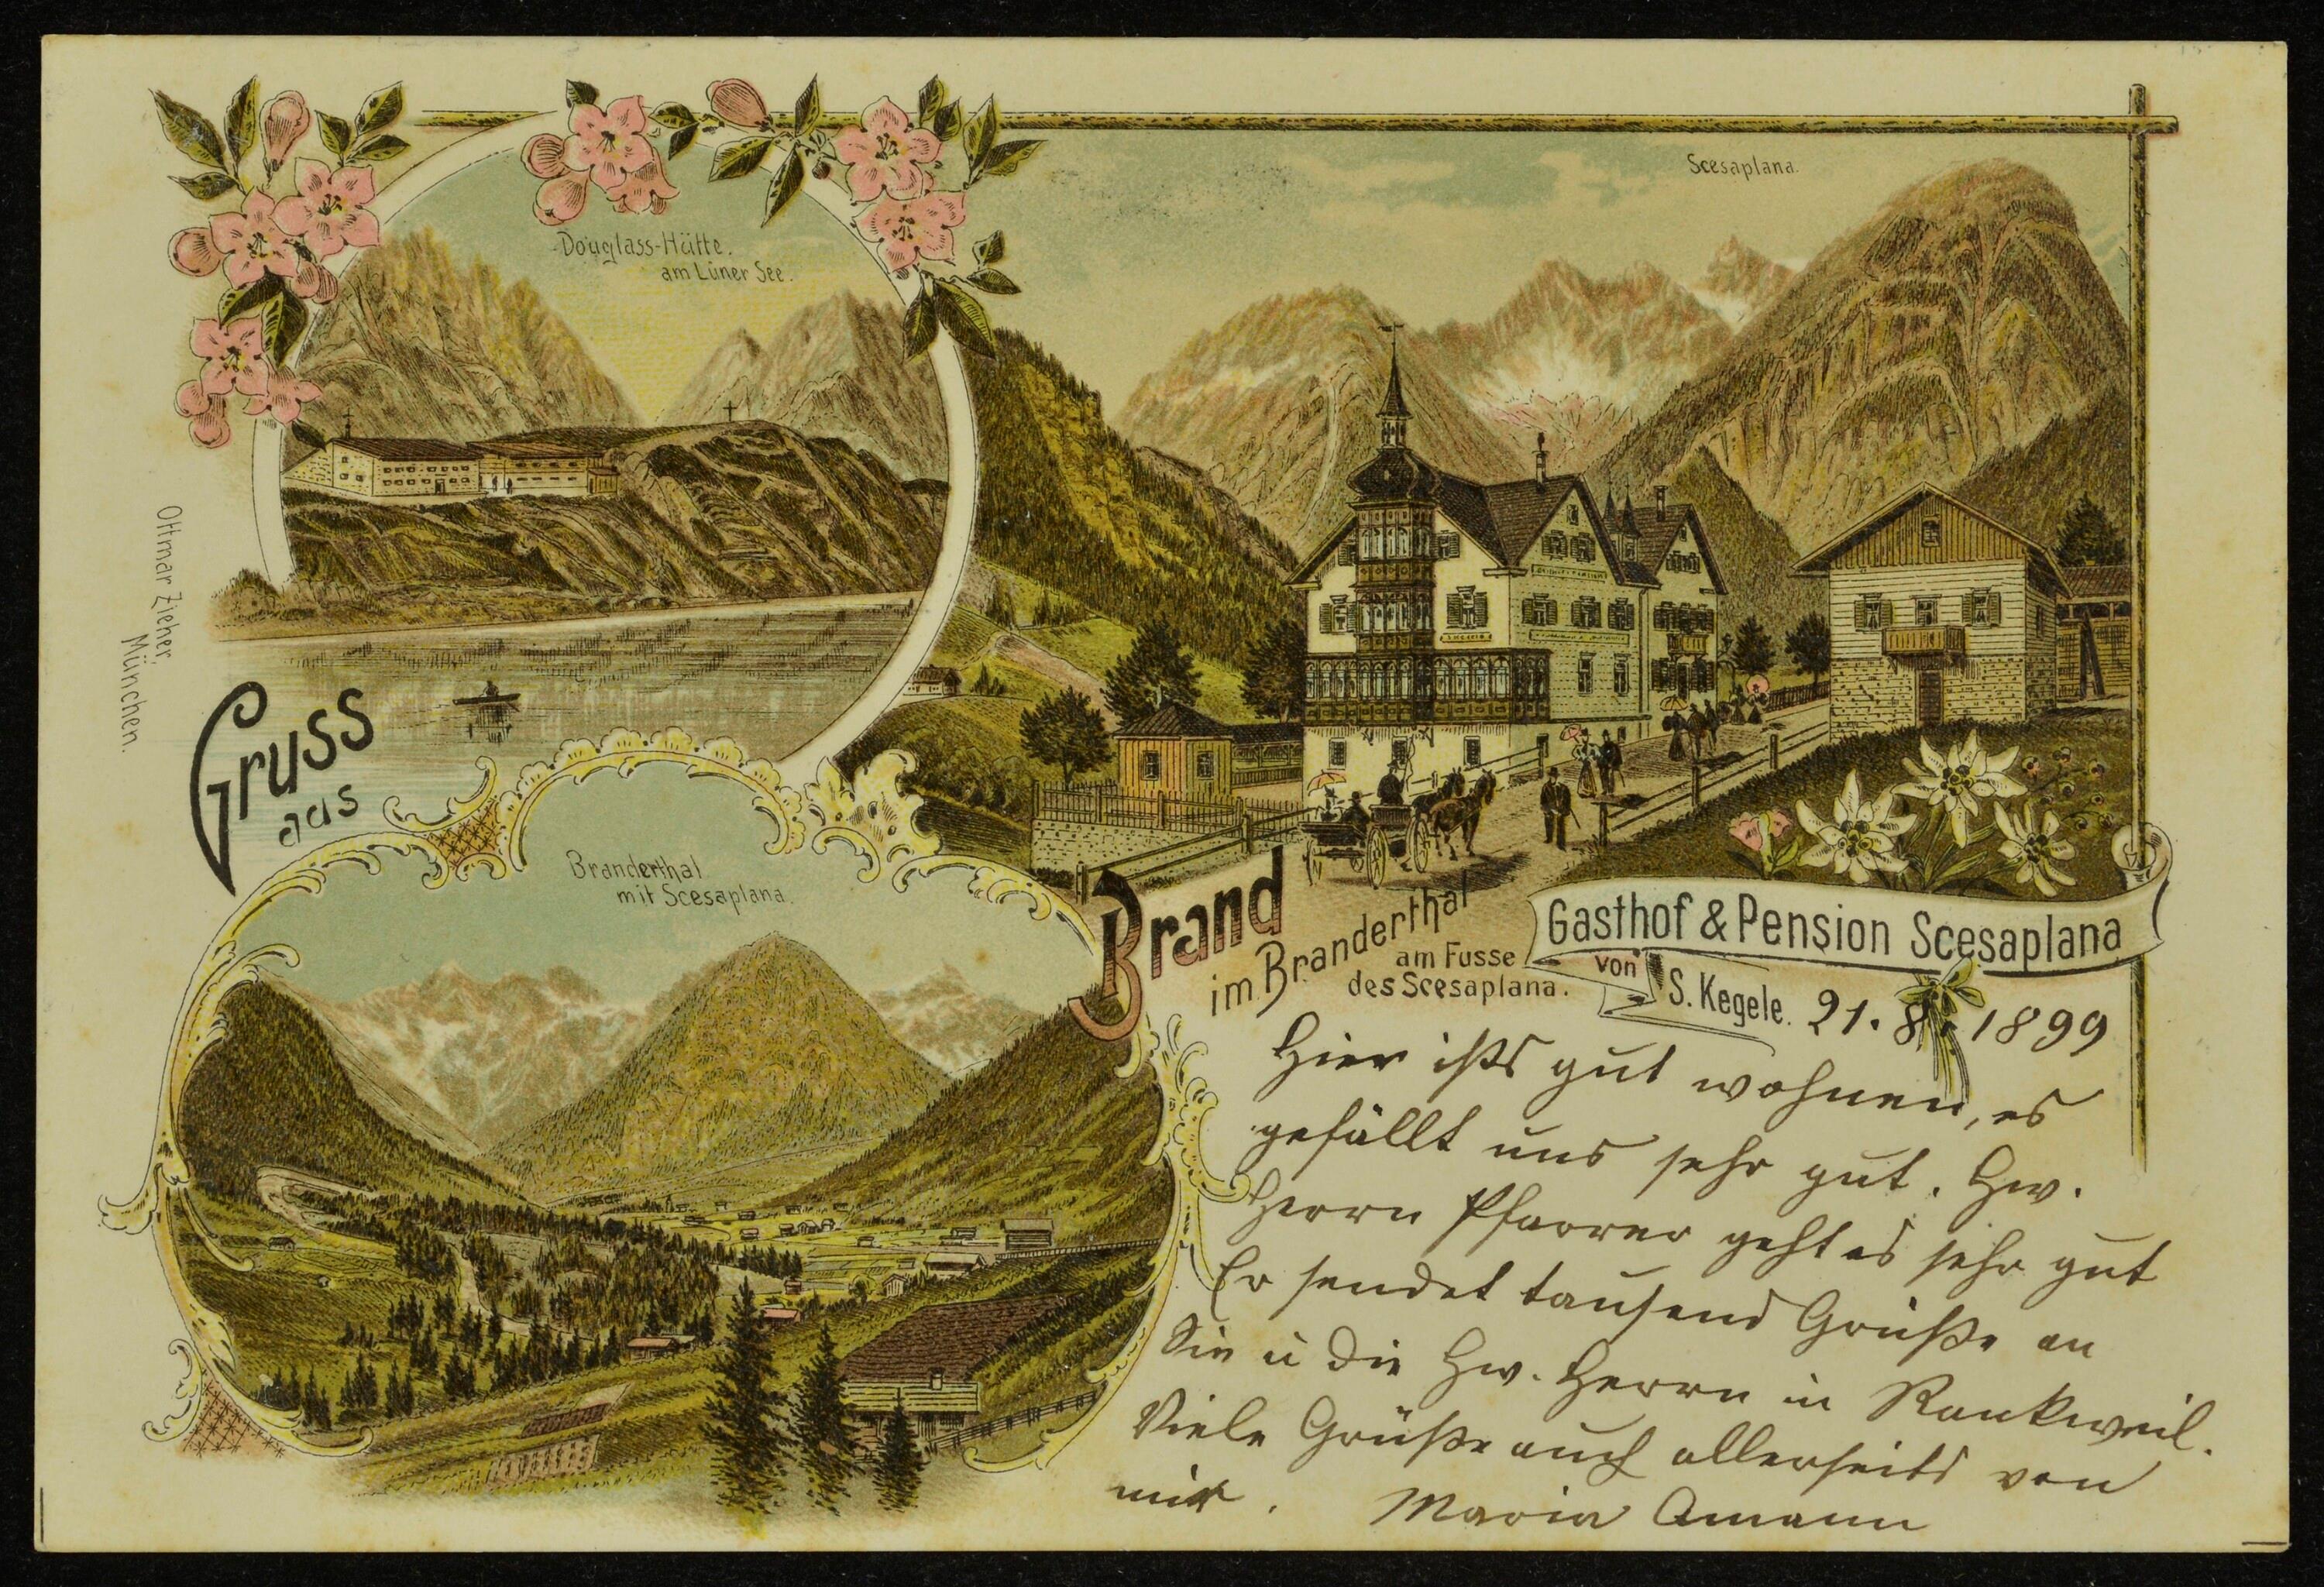 Douglass-Hütte.
am Lüner See.
Scesaplana.
Ottmar Zieher,
München.
Gruss
aus
Branderthal
mit Scesaplana.
Brand
im Branderthal
am Fusse
des Scesaplana.
Gasthof & Pension Scesaplana
von
S. Kegele.
21. 8. 1899
Hier ists gut wohnen, es
gefällt uns sehr gut. Hw.
Herrn Pfarrer geht es sehr gut
Er sendet tausend Grüße an
Sie u die Hw. Herrn in Rankweil.
Viele Grüße auch allerseits von
mir. Maria Amann